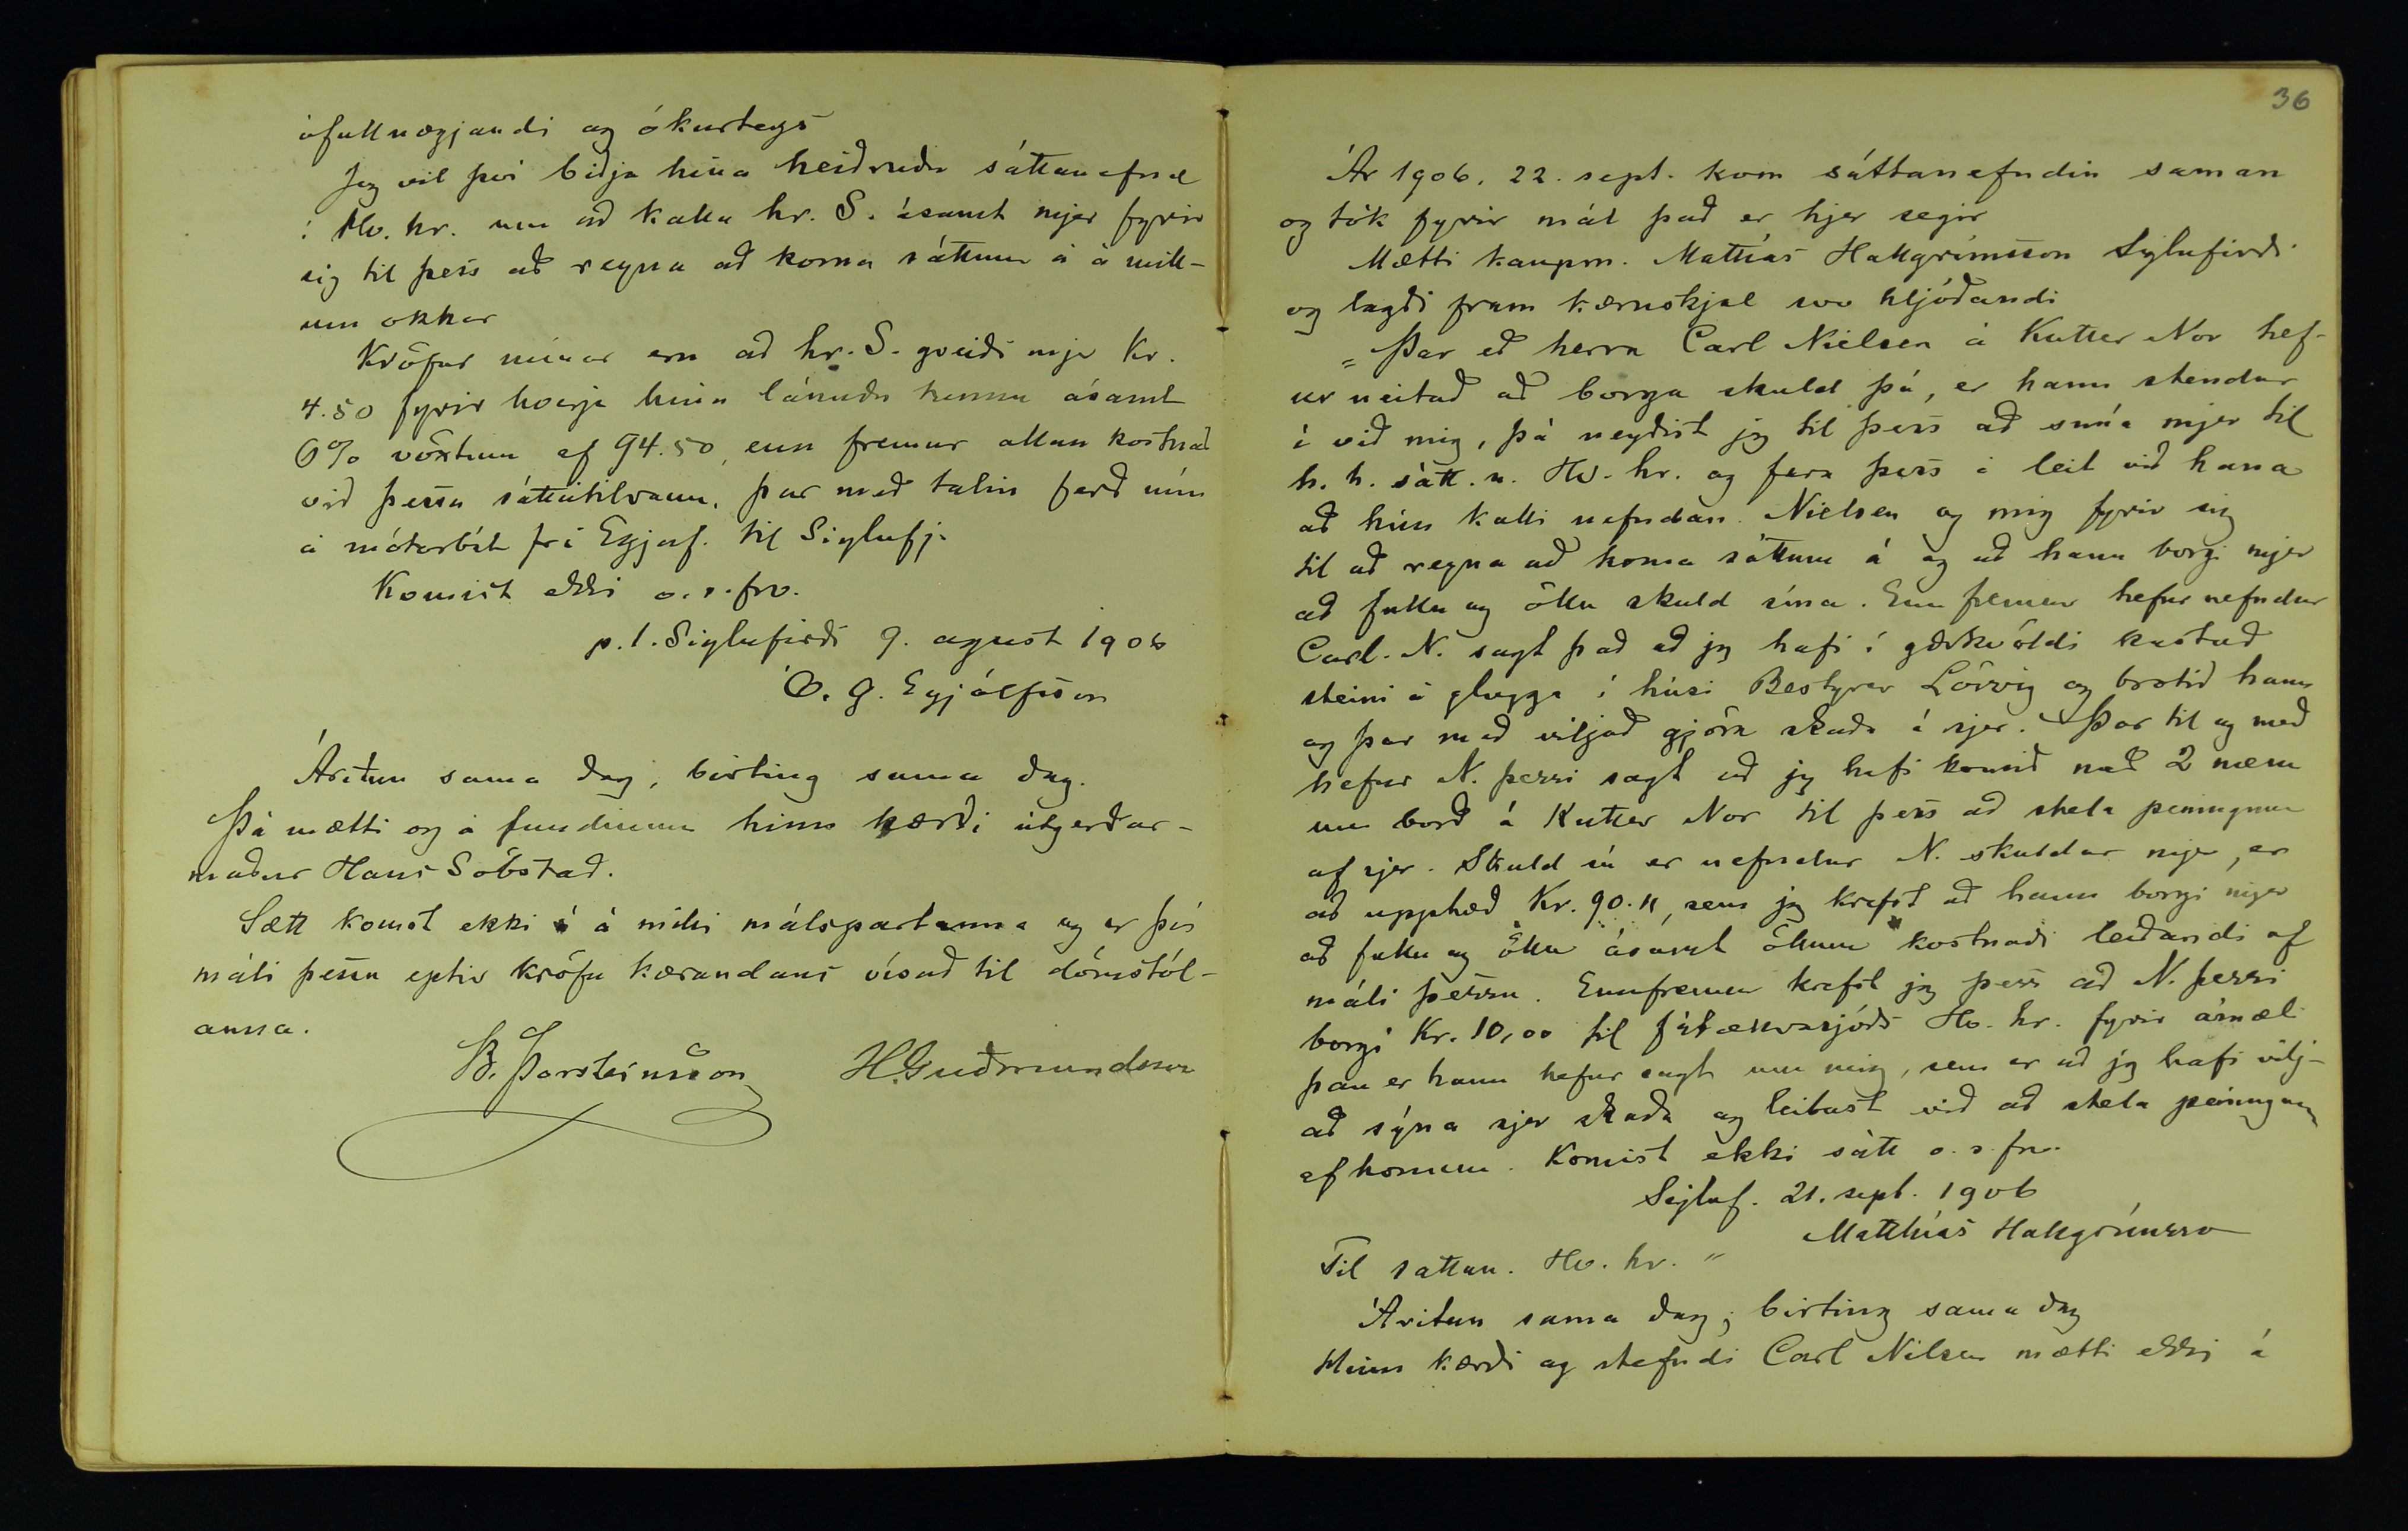 ófullnægjandi og ókurteys
Jeg vil því biðja hina heiðruðu sáttanefnd
í Hv. hr. um að kalla hr. S. ásamt mjer fyrir
sig til þess að reyna að koma sáttum á á mill-
um okkar
Kröfur mínar eru að hr. S. greiði mjer Kr.
4.50 fyrir hverja hina lánuðu tunnu ásamt
6% vöxtum af 94.50, enn fremur allan kostnað
við þessa sáttatilraun, þar með talin ferð mín
á mótorbát frá Eyjaf. til Siglufj.
Komist ekki o.s.frv.
p.t. Siglufirði 9. agust 1906
O. G. Eyjólfsson
Áritun sama dag, birting sama dag.
Þá mætti og á fundinum hinn kærði útgerðar-
maður Hans Söbstad.
Sætt komst ekki á á milli málspartanna og er því
máli þessu eptir kröfu kærandans vísað til dómstól-
anna.
B. Þorsteinsson H. Guðmundsson
36
Ár 1906, 22. sept. kom sáttanefndin saman
og tók fyrir mál það er hjer segir
Mætti kaupm. Mattías Hallgrímsson Siglufirði
og lagði fram kæruskjal svo hljóðandi
„Þar eð herra Carl Nielsen á Kutter Nor hef-
ur neitað að borga skuld þá, er hann stendur
í við mig, þá neyðist jeg til þess að snúa mjer til
h. h. sátt. n. Hv. hr. og fara þess á leit við hana
að hún kalli nefndan Nielsen og mig fyrir sig
til að reyna að koma sáttum á og að hann borgi mjer
að fullu og öllu skuld sína. Enn fremur hefur nefndur
Carl. N. sagt það að jeg hafi í gærkvöldi kastað
steini á glugga í húsi Bestyrer Lövvig og brotið hann
og þar með viljað gjöra skaða á sjer. Þar til og með
hefur N. þessi sagt að jeg hafi komið með 2 menn
um borð á Kutter Nor til þess að stela peningum
af sjer. Skuld sú er nefndur N. skuldar mjer, er
að upphæð Kr. 90.11, sem jeg krefst að hann borgi mjer
að fullu og öllu ásamt öllum kostnaði leiðandi af
máli þessu. Ennfremur krefst jeg þess að N. þessi
borgi Kr. 10,00 til fátækrasjóðs Hv. hr. fyrir ámæli
þau er hann hefur sagt um mig, sem er að jeg hafi vilj-
að sýna sjer skaða og leitast við að stela peningum
af honum. Komist ekki sátt o.s.frv.
Sigluf. 21. sept. 1906
Matthías Hallgrímsson
Til sáttan. Hv. hr. "
Áritun sama dag; birting sama dag
Hinn kærði og stefndi Carl Nilsen mætti ekki á